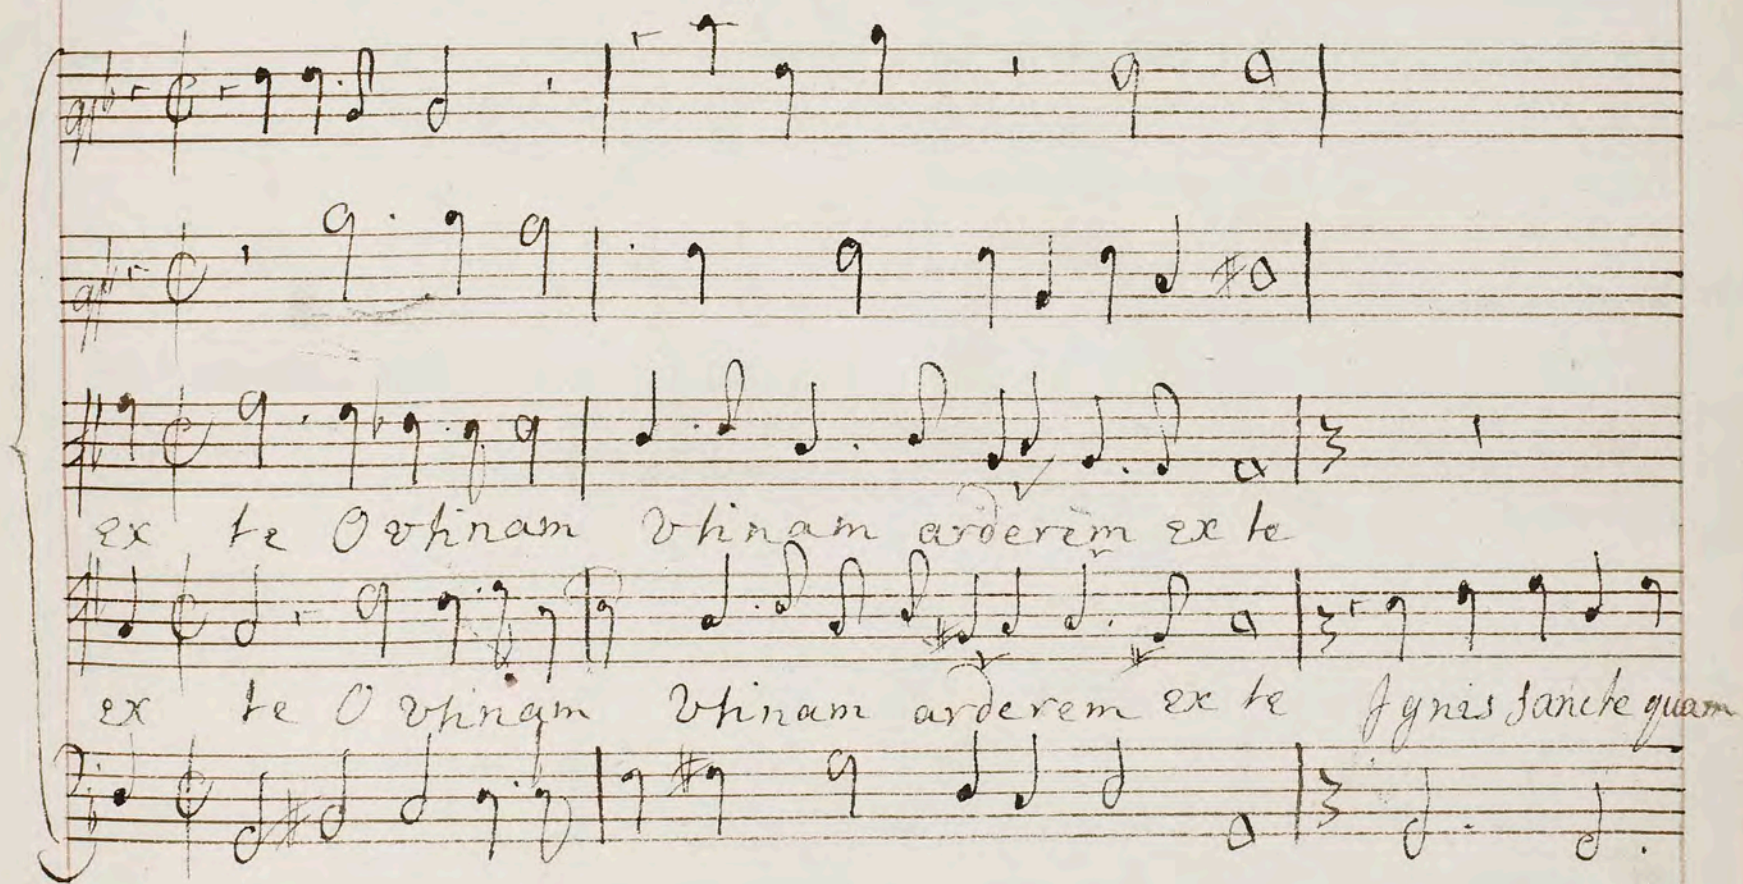 ex te O vtinam vtinam arderem ex te
ex te O vtinam vtinam arderem ex te Ignis sancte quam